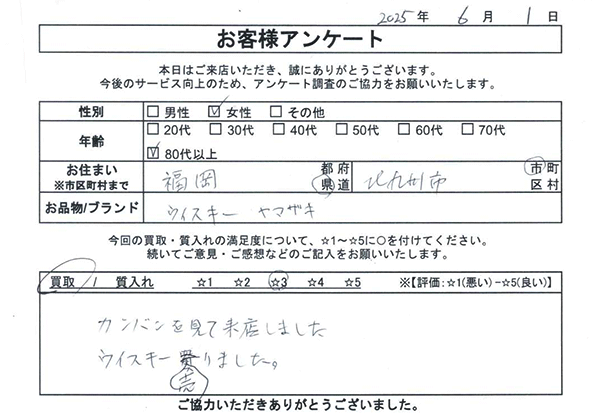 2025年 6月 1日
お客様アンケート
本日はご来店いただき、誠にありがとうございます。
今後のサービス向上のため、アンケート調査のご協力をお願いいたします。
性別 □男性 ☑女性 □その他
年齢 □20代 □30代 □40代 □50代 □60代 □70代
☑80代以上
お住まい ※市区町村まで 福岡 都府県道 北九州市 市町区村
お品物/ブランド ウイスキー ヤマザキ
今回の買取・質入れの満足度について、☆1～☆5に○を付けてください。
続いてご意見・ご感想などのご記入をお願いいたします。
買取 / 質入れ ☆1 ☆2 ☆3 ☆4 ☆5 ※【評価:☆1(悪い)-☆5(良い)】
カンバンを見て来店しました
ウイスキー売りました。
ご協力いただきありがとうございました。